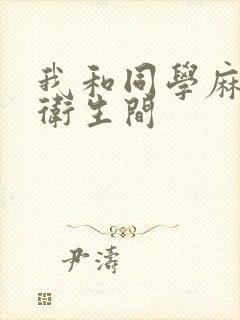 我和同學麻
衛生間
尹濤